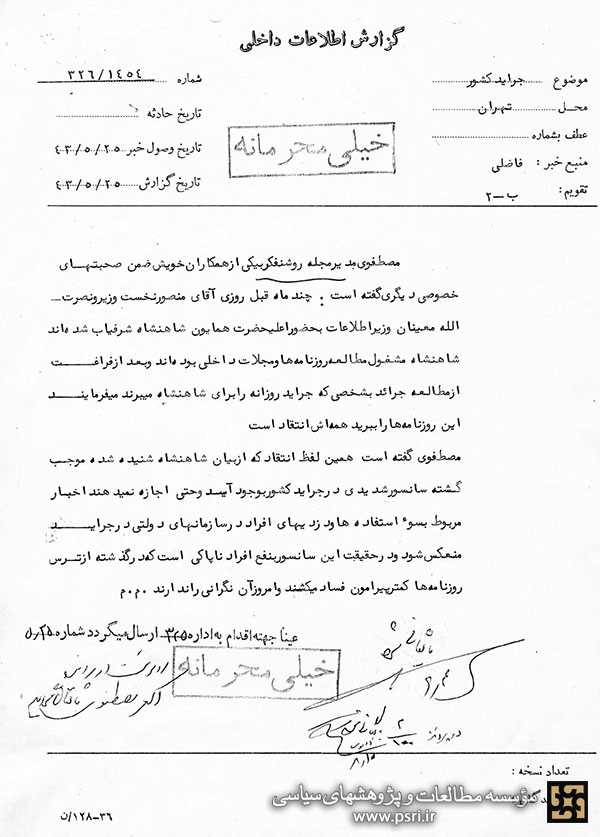 گزارش اطلاعات داخلی
موضوع جراید کشور
شماره ۳۲۶/۱۴۵۴
محل تهران
تاریخ حادثه
عطف بشماره
تاریخ وصول خبر ۴۳/۵/۲۵
منبع خبر : فاضلی
تاریخ گزارش ۴۳/۵/۲۵
تقویم: ب-۲
خیلی محرمانه
مصطفوی مدیر مجله روشنفکر بیکی از همکاران خویش ضمن صحبتهای
خصوصی دیگری گفته است . چند ماه قبل روزی آقای منصور نخست وزیر و نصرت
الله معینان وزیر اطلاعات بحضور اعلیحضرت همایون شاهنشاه شرفیاب شده اند
شاهنشاه مشغول مطالعه روزنامه ها و مجلات داخلی بوده اند و بعد از فراغت
از مطالعه جرائد بشخصی که جراید روزانه را برای شاهنشاه میبرند میفرمایند
این روزنامه ها را ببرید همه اش انتقاد است
مصطفوی گفته است همین لفظ انتقاد که از بیان شاهنشاه شنیده شده موجب
گشته سانسور شدیدی در جراید کشور بوجود آید و حتی اجازه نمیدهند اخبار
مربوط بسوء استفاده ها و دزدیهای افراد در سازمانهای دولتی در جراید
منعکس شود و در حقیقت این سانسور بنفع افراد ناپاکی است که در گذشته از ترس
روزنامه ها کمتر پیرامون فساد میگشتند و امروز آن نگرانی را ندارند م.م
عیناً جهته اقدام به اداره ۳۲۵ ارسال میگردد شماره
خیلی محرمانه
تعداد نسخه :
۱۲۸-۳۶/ن
مؤسسه مطالعات و پژوهشهای سیاسی
www.psri.ir